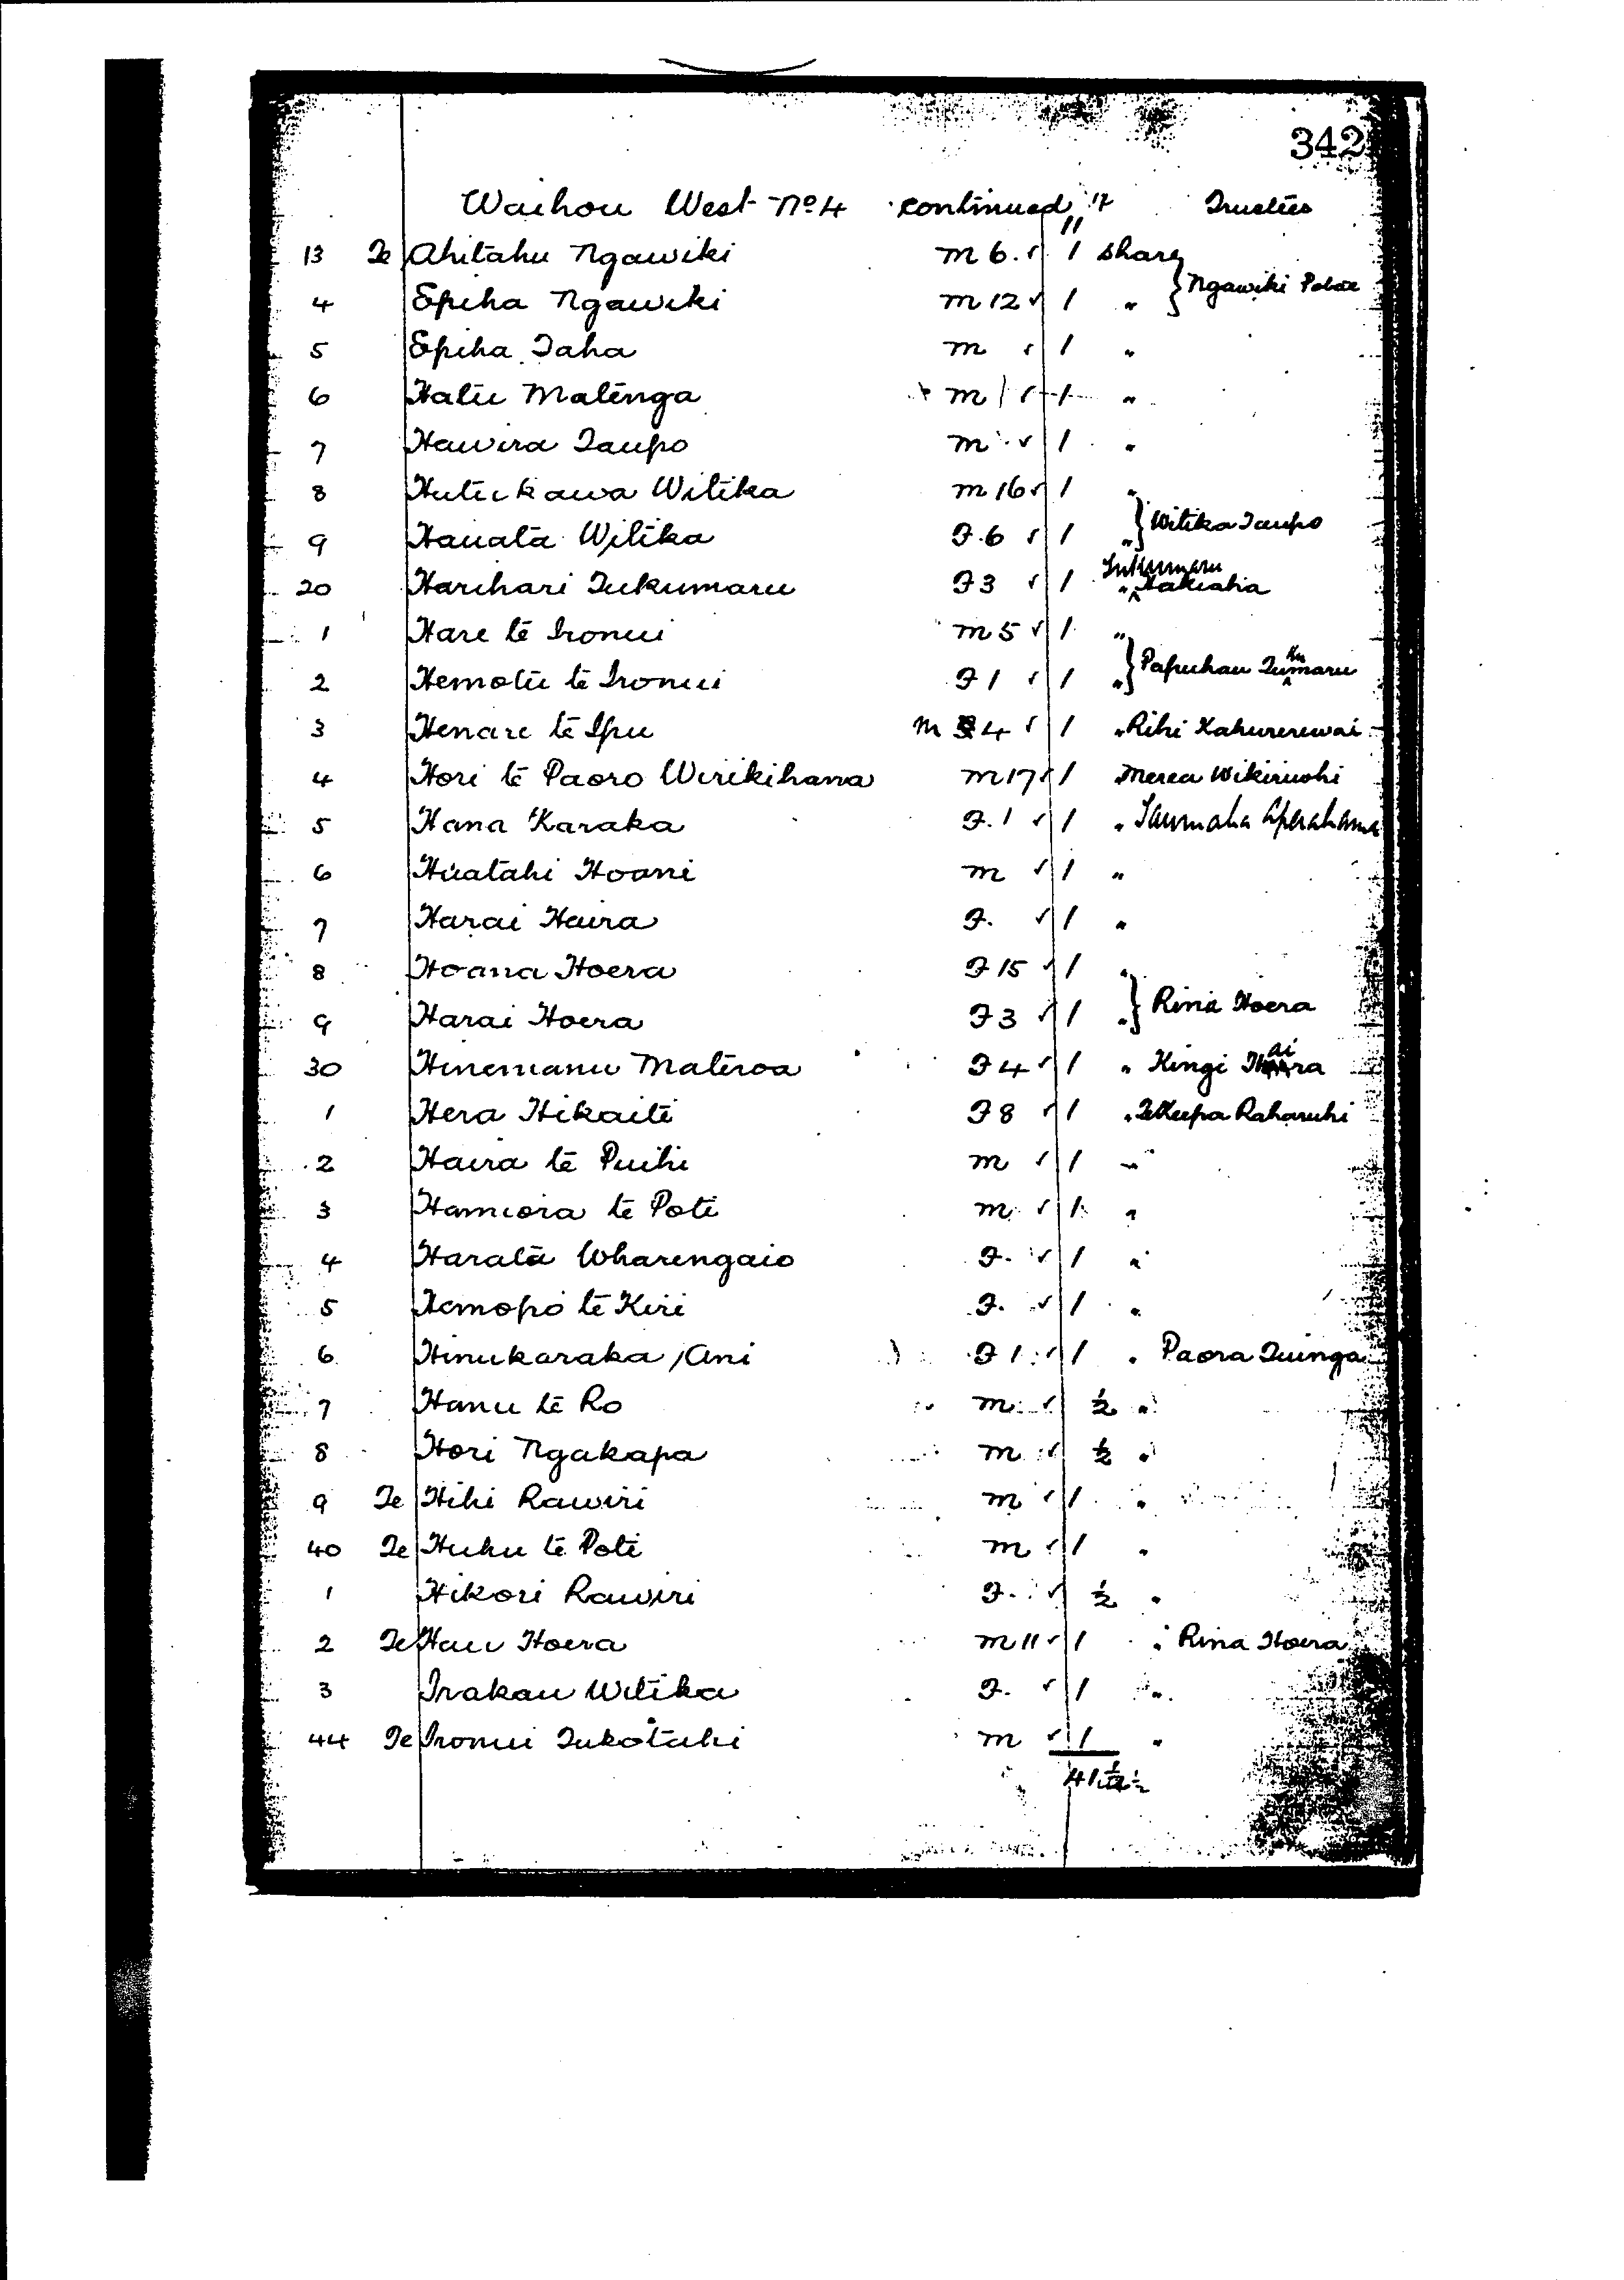 342
Waihou West No 4 continued 17 Trustees
11
13 Te Ahitahu Ngawiki m 6. ✓ 1 share
} Ngawiki
4 Epiha Ngawiki m 12 ✓ 1 "
5 Epiha Taha m ✓ 1 "
6 Hatu Matenga m ✓ 1 "
7 Hawira Taupo m ✓ 1 "
8 Hutukawa Witika m 16 ✓ 1 "
} Witika Taupo
9 Hauata Witika F. 6 ✓ 1 "
20 Harihari Tukumaru F 3 ✓ 1 " Tukumaru
1 Hare te Ironui m 5 ✓ 1 "
} Papuhau Tukumaru
2 Hemotu te Ironui F 1 ✓ 1 "
3 Henare te Ipu m 4 ✓ 1 " Rihi Kahurerewai
4 Hori te Paoro Wirikihana m 17 ✓ 1 " Merea
5 Hana Karaka F. 1 ✓ 1 " Taumaha Aperahama
6 Huatahi Hoani m ✓ 1 "
7 Harai Haira F. ✓ 1 "
8 Hoana Hoera F 15 ✓ 1 "
} Rina Hoera
9 Harai Hoera F 3 ✓ 1 "
30 Hinemanu Materoa F 4 ✓ 1 " Kingi Haira
1 Hera Hikaiti F 8 ✓ 1 " Te Keepa Raharuhi
2 Haira te Puihi m ✓ 1 "
3 Hamiora te Pote m ✓ 1 "
4 Harata Wharengaio F. ✓ 1 "
5 Hemopo te Kiri F. ✓ 1 "
6 Hinukaraka, Ani F 1 ✓ 1 " Paora Tuinga
7 Hanu te Ro m ✓ ½ "
8 Hori Ngakapa m ✓ ½ "
9 Te Hihi Rawiri m ✓ 1 "
40 Te Huhu te Pote m ✓ 1 "
1 Hikori Rawiri F. ✓ ½ "
2 Te Hau Hoera m 11 ✓ 1 " Rina Hoera
3 Irakau Witika F. ✓ 1 "
44 Te Ironui Tukotahi m ✓ 1 "